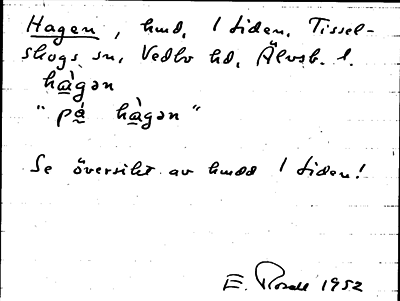 Hagen, hmd, 1 sidan. Tissel-
skogs sn, Vedbo hd, Älvsb. l.
hà̱gən
"på̱ hà̱gən"
Se översikt av hmdd 1 sidan!
E. Rosell 1952